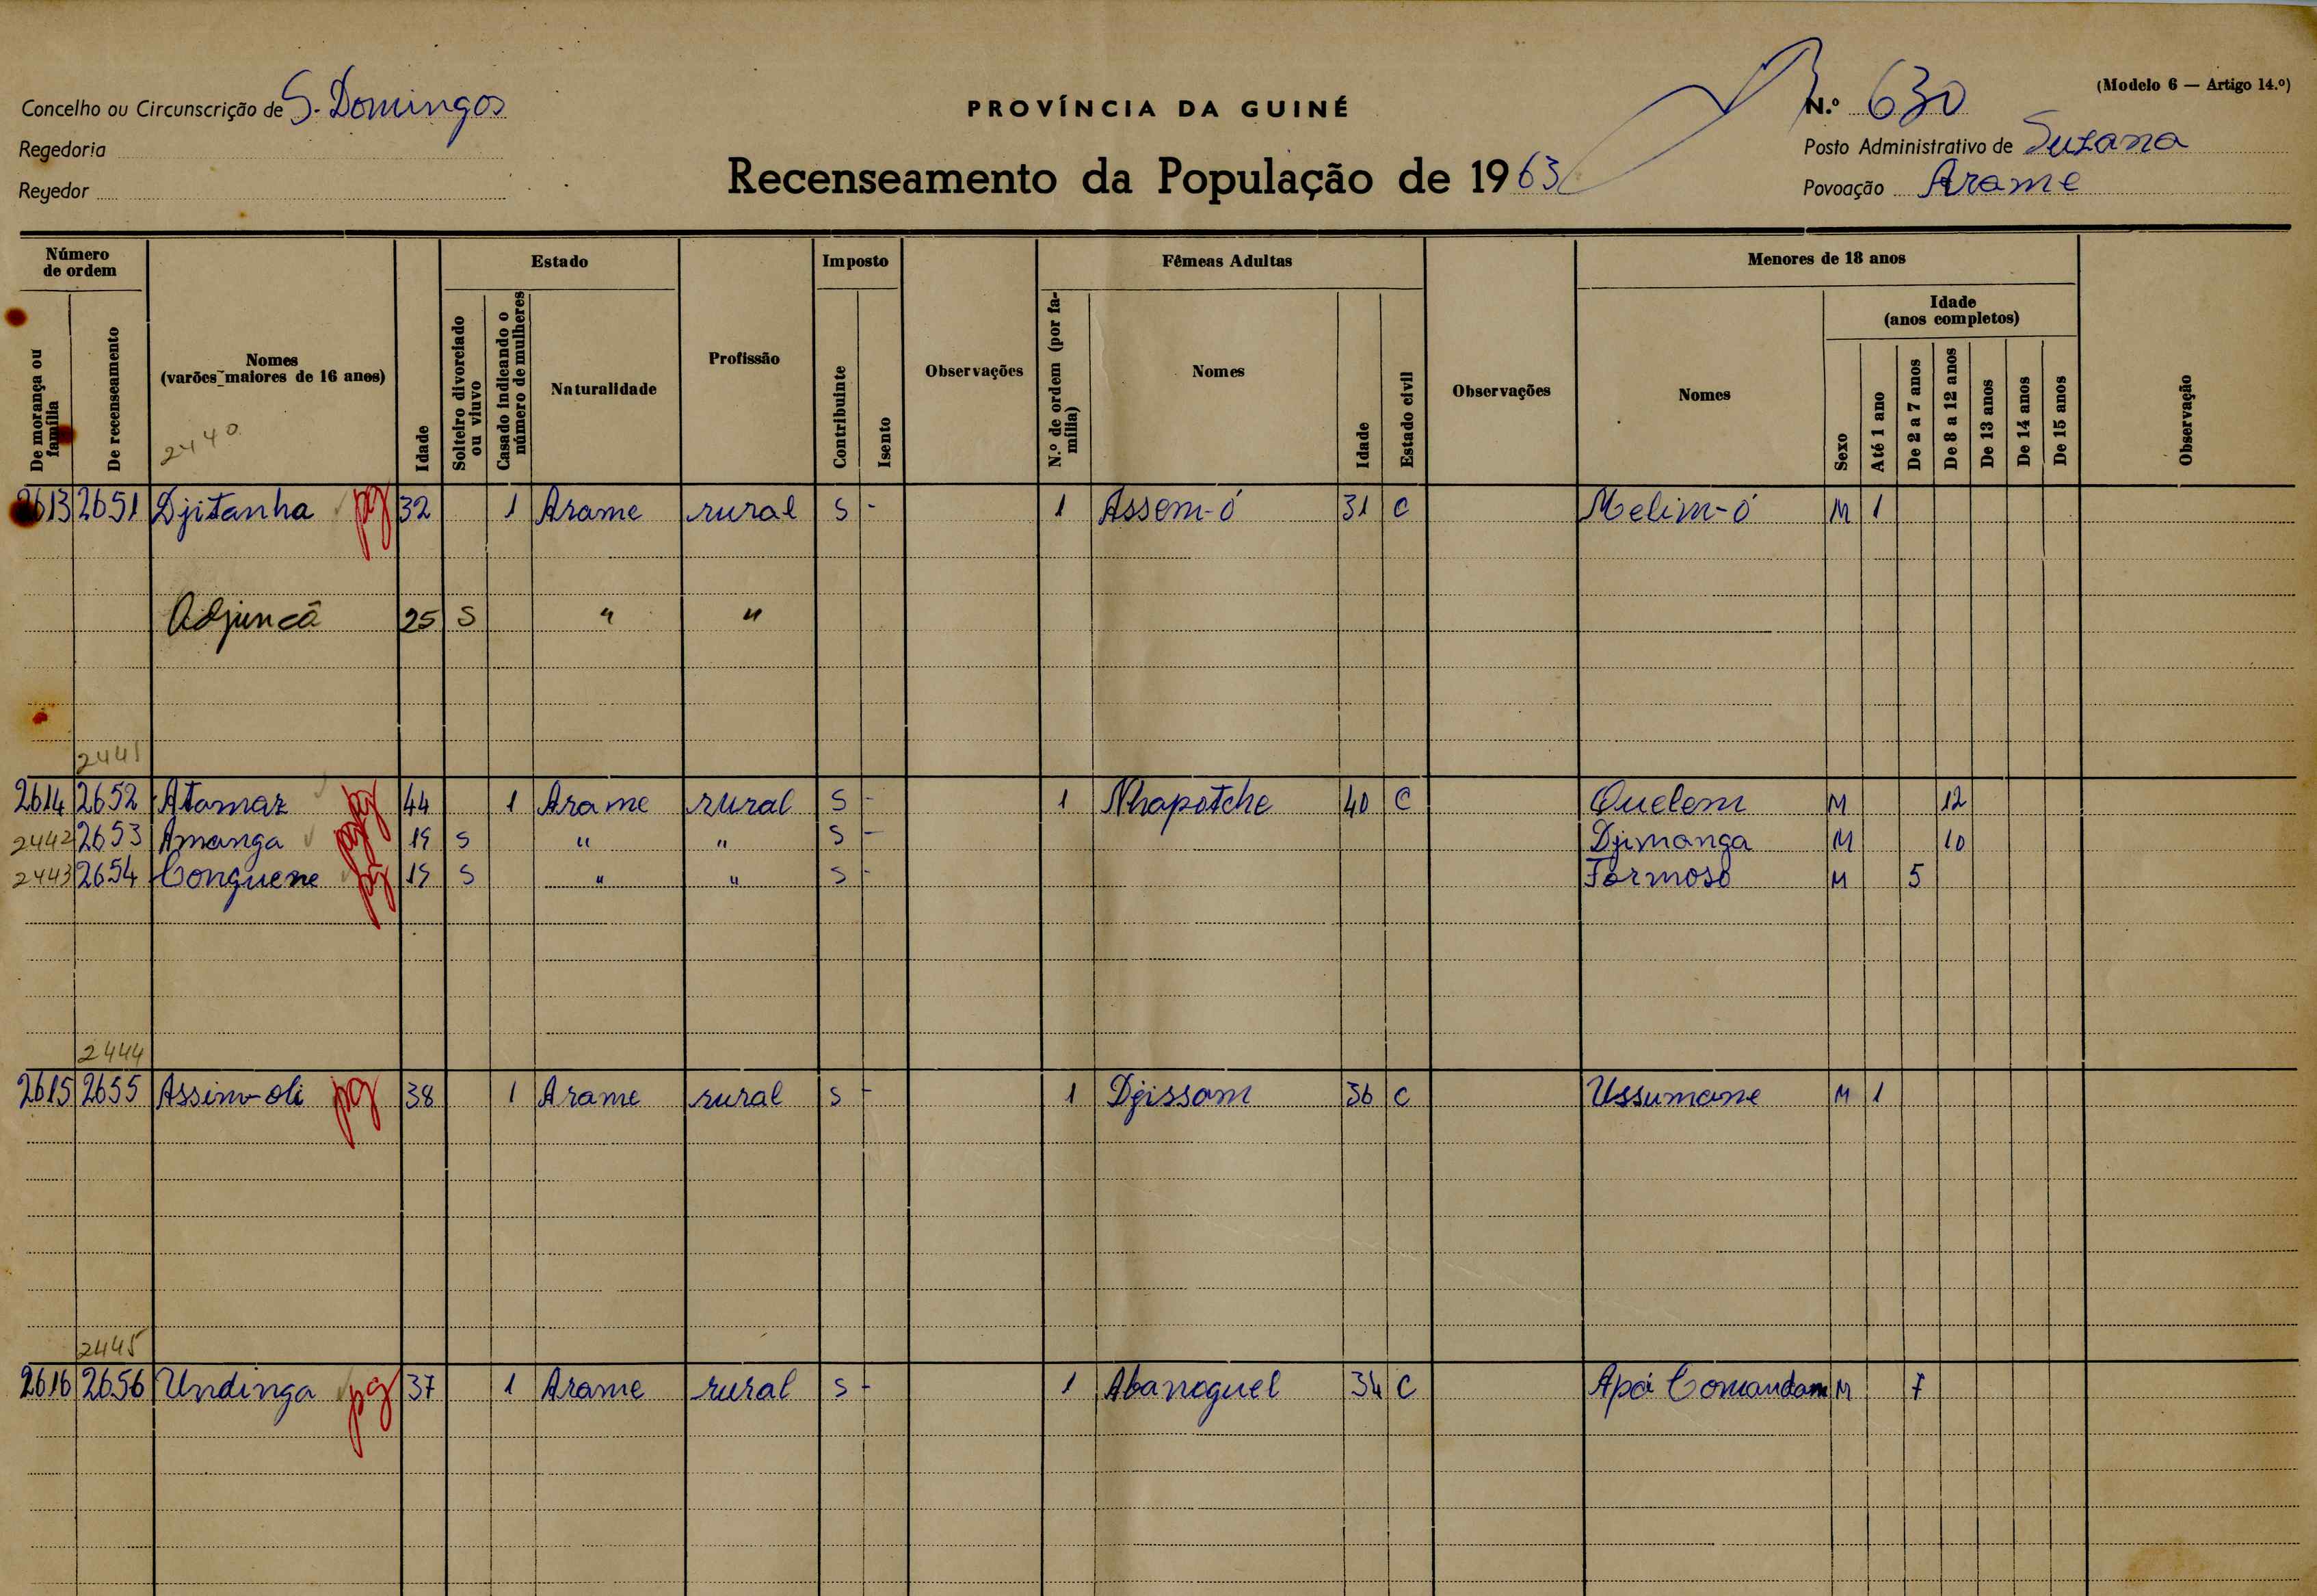 Concelho ou Circunscrição de S. Domingos
Regedoria
Regedor
PROVÍNCIA DA GUINÉ
Recenseamento da População de 1963
(Modelo 6 — Artigo 14.º)
N.º 630
Posto Administrativo de Suzana
Povoação Arame
Número de ordem
De morança ou família
De recenseamento
Nomes
(varões maiores de 16 anos)
2440
Idade
Estado
Solteiro divorciado ou viuvo
Casado indicando o número de mulheres
Naturalidade
Profissão
Imposto
Contribuinte
Isento
Observações
Fêmeas Adultas
N.º de ordem (por família)
Nomes
Idade
Estado civil
Observações
Menores de 18 anos
Nomes
Sexo
Idade
(anos completos)
Até 1 ano
De 2 a 7 anos
De 8 a 12 anos
De 13 anos
De 14 anos
De 15 anos
Observação
2613 2651 Djitanha pg 32 1 Arame rural S - 1 Assem-ó 31 C Melim-ó M 1
Adjuncã 25 S " "
2441
2614 2652 Atamaz pg 44 1 Arame rural S - 1 Nhapotche 40 C Quelem M 12
2442 2653 Amanga pg 19 S " " S - Djimanga M 10
2443 2654 Conguene pg 19 S " " S - Formoso M 5
2444
2615 2655 Assim-oli pg 38 1 Arame rural S - 1 Djissam 36 C Ussumane M 1
2445
2616 2656 Undinga pg 37 1 Arame rural S - 1 Abanaguel 34 C Apói Comandam M 7